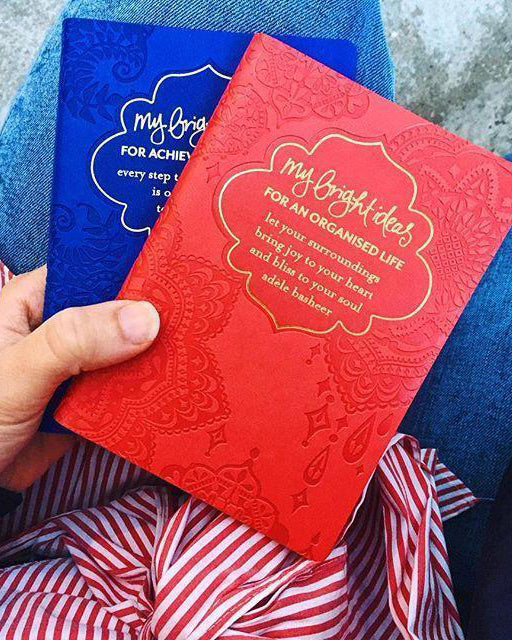 my brig
FOR ACHIEV
every step t
is o
to
my bright ideas
FOR AN ORGANISED LIFE
let your surroundings
bring joy to your heart
and bliss to your soul
adèle basheer